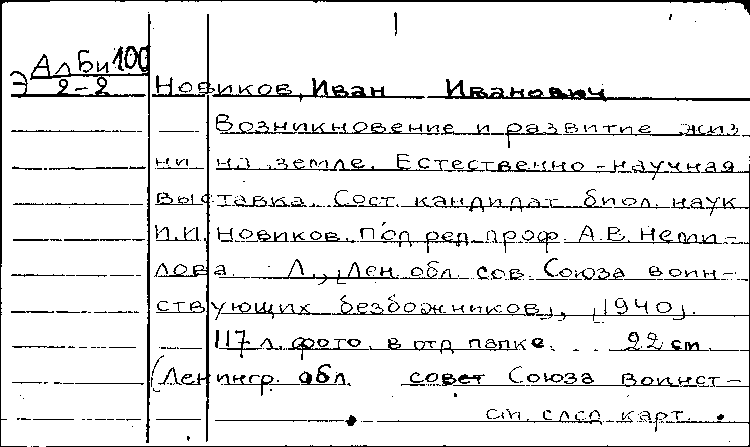 АлБи100
Э 2-2 Новиков, Иван Иванович
Возникновение и развитие жиз
ни на земле. Естественно-научная
выставка. Сост. кандидат биол. наук
И.И. Новиков. Под ред. проф. А.В. Неми-
лова. Л., [Лен. обл. сов. Союза воин-
ствующих безбожников], [1940].
117 л. фото. в отд папке. 22 см.
(Ленингр. обл. совет Союза воинст-
см. след карт.